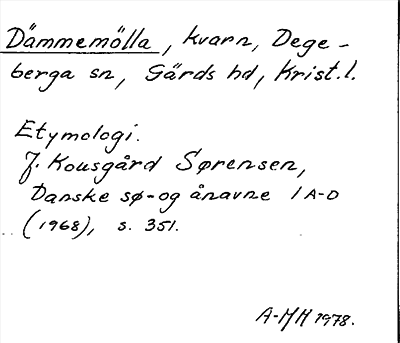 Dämmemölla, kvarn, Dege-
berga sn, Gärds hd, Krist.l.
Etymologi.
J. Kousgård Sørensen,
Danske sø- og ånavne 1 A-D
(1968), s. 351.
A-MH 1978.